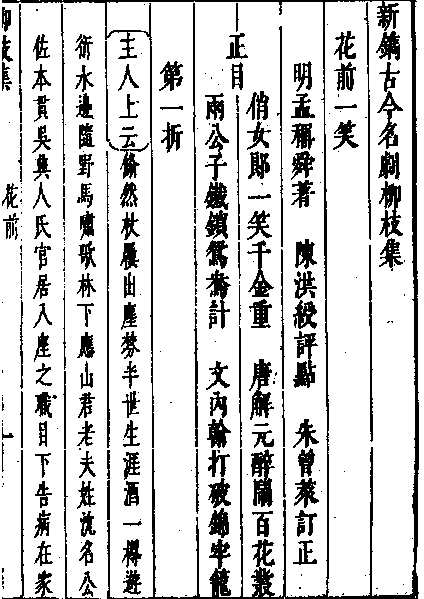 新鐫古今名劇柳枝集
花前一笑
明孟稱舜著 陳洪綬評點 朱曾萊訂正
正目
俏女郎一笑千金重 唐解元醉鬧百花叢
兩公子鐵鎖鴛鴦計 文內翰打破錦牢籠
第一折
主人上云翛然杖屨出塵棼半世生涯酒一樽遊
衍水邊隨野馬嘯歌林下應山君老夫姓沈名公
佐本貫吳興人氏官居八座之職目下告病在家
柳枝集 花前 一